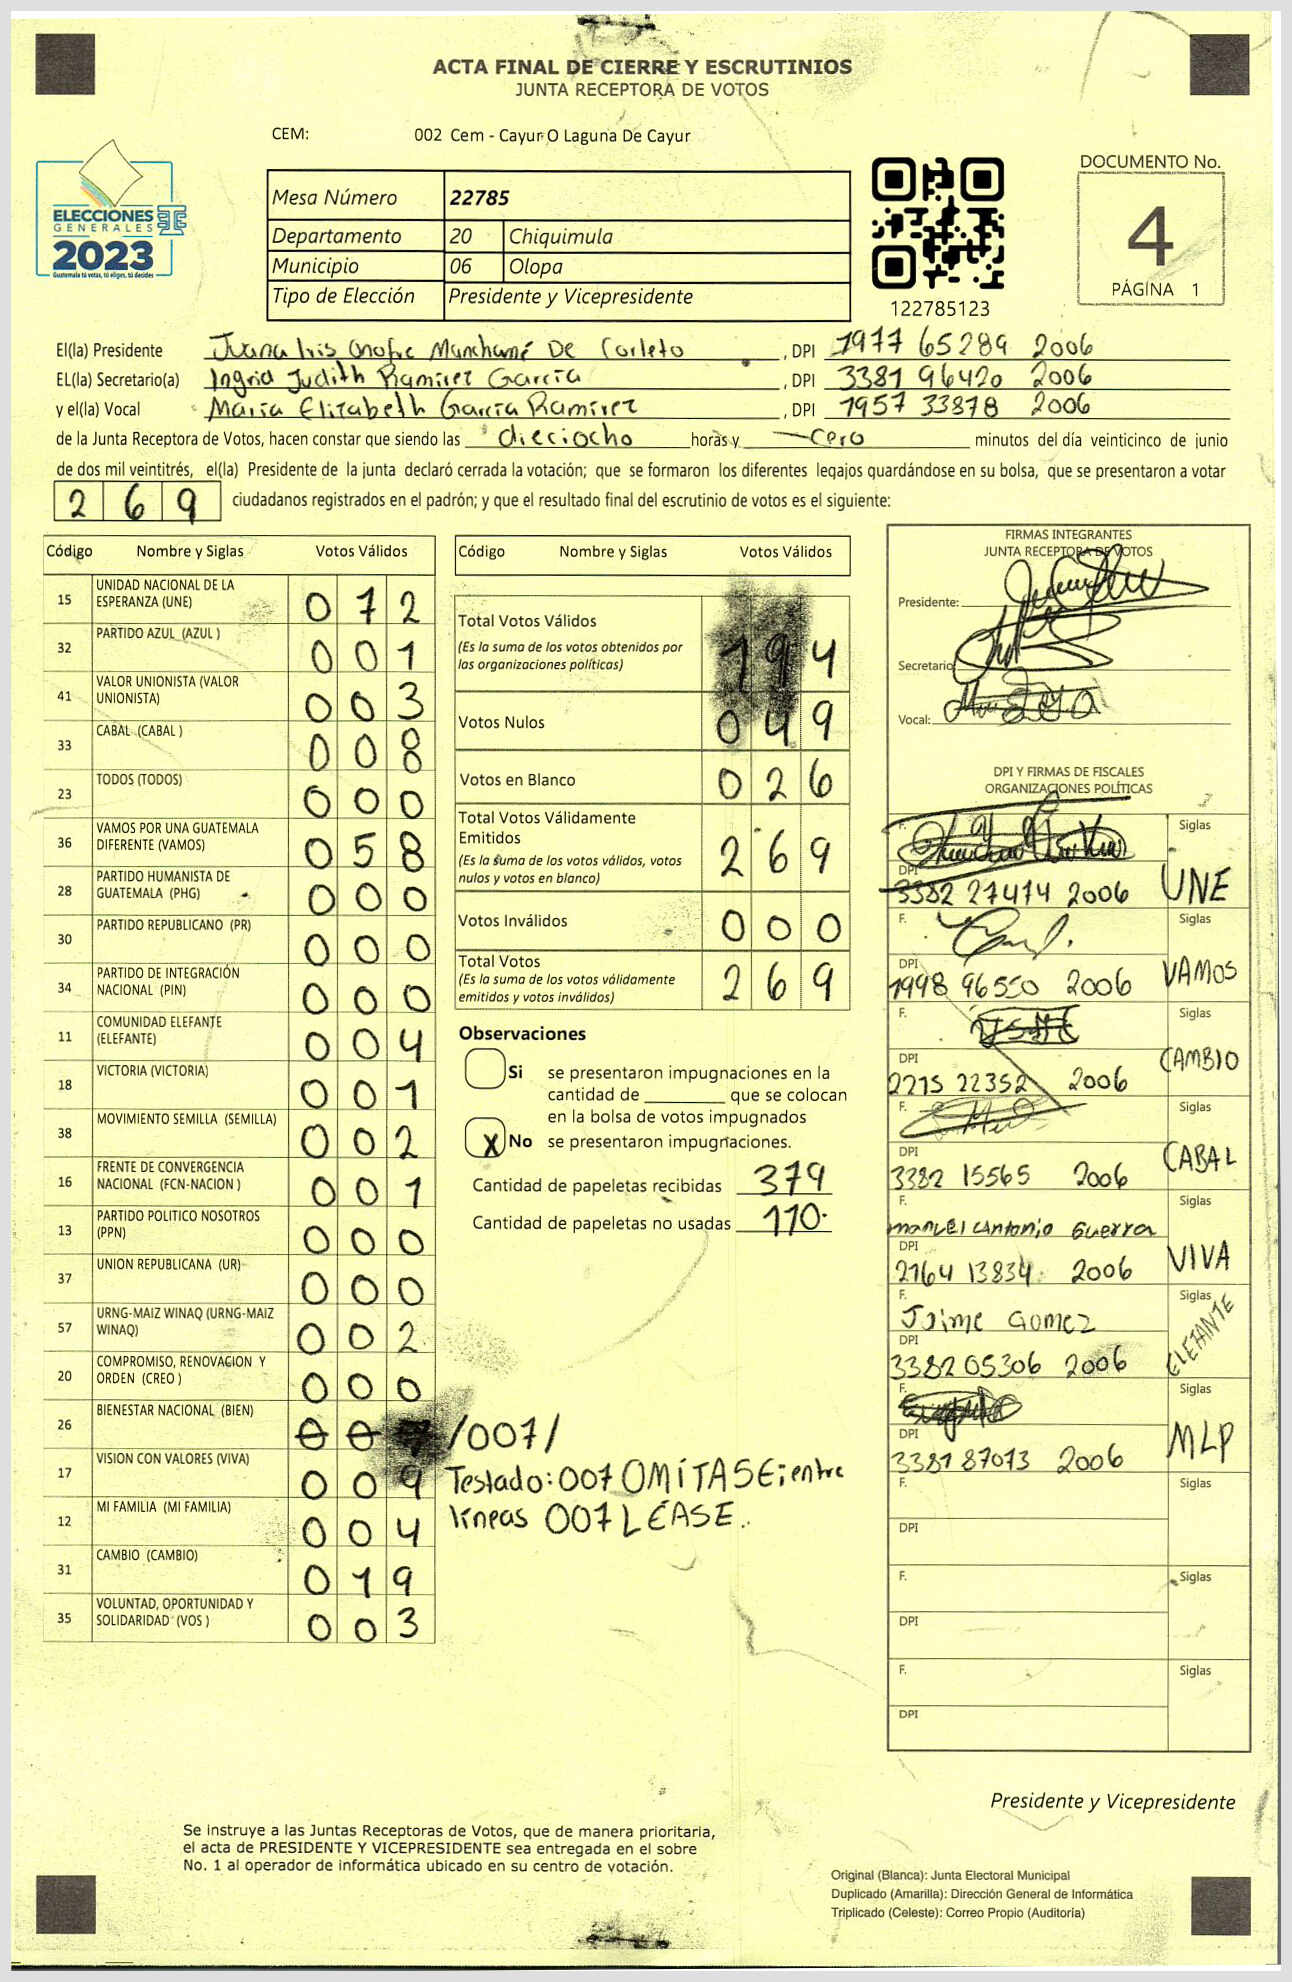 ACTA FINAL DE CIERRE Y ESCRUTINIOS
JUNTA RECEPTORA DE VOTOS
CEM: 002 Cem - Cayur O Laguna De Cayur
ELECCIONES
GENERALES
2023
Guatemala tú votas, tú eliges, tú decides
Mesa Número 22785
Departamento 20 Chiquimula
Municipio 06 Olopa
Tipo de Elección Presidente y Vicepresidente
122785123
DOCUMENTO No.
4
PÁGINA 1
El(la) Presidente Juana Iris Onofre Manchamé De Corleto, DPI 1977 65289 2006
EL(la) Secretario(a) Ingrid Judith Ramirez García, DPI 3381 96420 2006
y el(la) Vocal María Elizabeth García Ramírez, DPI 1957 33878 2006
de la Junta Receptora de Votos, hacen constar que siendo las dieciocho horas y cero minutos del día veinticinco de junio
de dos mil veintitrés, el(la) Presidente de la junta declaró cerrada la votación; que se formaron los diferentes legajos guardándose en su bolsa, que se presentaron a votar
269 ciudadanos registrados en el padrón; y que el resultado final del escrutinio de votos es el siguiente:
Código Nombre y Siglas Votos Válidos
15 UNIDAD NACIONAL DE LA ESPERANZA (UNE) 072
32 PARTIDO AZUL (AZUL ) 001
41 VALOR UNIONISTA (VALOR UNIONISTA) 003
33 CABAL (CABAL ) 008
23 TODOS (TODOS) 000
36 VAMOS POR UNA GUATEMALA DIFERENTE (VAMOS) 058
28 PARTIDO HUMANISTA DE GUATEMALA (PHG) 000
30 PARTIDO REPUBLICANO (PR) 000
34 PARTIDO DE INTEGRACIÓN NACIONAL (PIN) 000
11 COMUNIDAD ELEFANTE (ELEFANTE) 004
18 VICTORIA (VICTORIA) 001
38 MOVIMIENTO SEMILLA (SEMILLA) 002
16 FRENTE DE CONVERGENCIA NACIONAL (FCN-NACION ) 001
13 PARTIDO POLITICO NOSOTROS (PPN) 000
37 UNION REPUBLICANA (UR) 000
57 URNG-MAIZ WINAQ (URNG-MAIZ WINAQ) 002
20 COMPROMISO, RENOVACION Y ORDEN (CREO ) 000
26 BIENESTAR NACIONAL (BIEN) 007 /007/
17 VISION CON VALORES (VIVA) 009
12 MI FAMILIA (MI FAMILIA) 004
31 CAMBIO (CAMBIO) 019
35 VOLUNTAD, OPORTUNIDAD Y SOLIDARIDAD (VOS ) 003
Testado: 007 OMÍTASE; entre
líneas 007 LÉASE.
Código Nombre y Siglas Votos Válidos
Total Votos Válidos 194
(Es la suma de los votos obtenidos por
las organizaciones políticas)
Votos Nulos 049
Votos en Blanco 026
Total Votos Válidamente
Emitidos 269
(Es la suma de los votos válidos, votos
nulos y votos en blanco)
Votos Inválidos 000
Total Votos 269
(Es la suma de los votos válidamente
emitidos y votos inválidos)
Observaciones
Si se presentaron impugnaciones en la
cantidad de ________ que se colocan
en la bolsa de votos impugnados
X No se presentaron impugnaciones.
Cantidad de papeletas recibidas 379
Cantidad de papeletas no usadas 110.
FIRMAS INTEGRANTES
JUNTA RECEPTORA DE VOTOS
Presidente:
Secretario
Vocal:
DPI Y FIRMAS DE FISCALES
ORGANIZACIONES POLÍTICAS
F. Siglas
DPI 3382 27474 2006 UNE
F. Siglas
DPI 1998 96550 2006 VAMOS
F. Siglas
DPI 2215 22352 2006 CAMBIO
F. Siglas
DPI 3382 15565 2006 CABAL
F. manuel antonio Guerra Siglas
DPI 2164 13834 2006 VIVA
F. Jaime Gomez Siglas
DPI 3382 05306 2006 ELEFANTE
F. Siglas
DPI 3381 87073 2006 MLP
F. Siglas
DPI
F. Siglas
DPI
F. Siglas
DPI
Presidente y Vicepresidente
Se instruye a las Juntas Receptoras de Votos, que de manera prioritaria,
el acta de PRESIDENTE Y VICEPRESIDENTE sea entregada en el sobre
No. 1 al operador de informática ubicado en su centro de votación.
Original (Blanca): Junta Electoral Municipal
Duplicado (Amarilla): Dirección General de Informática
Triplicado (Celeste): Correo Propio (Auditoría)